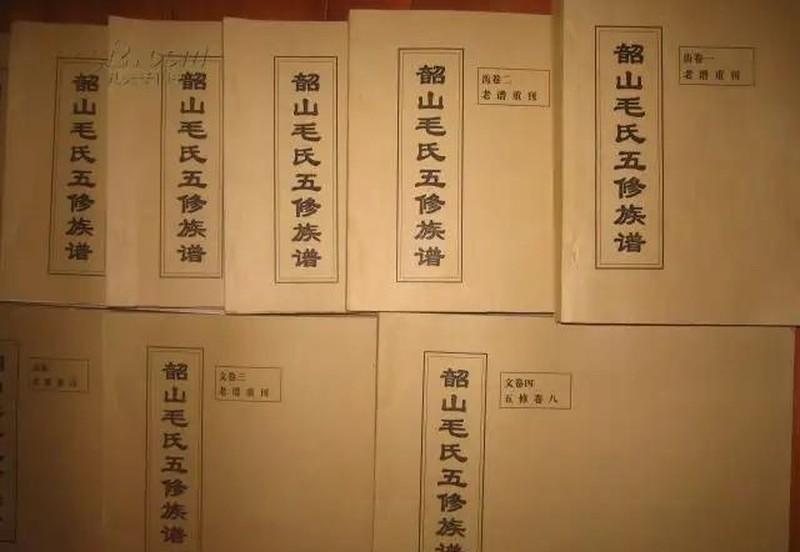 韶山毛氏五修族谱
韶山毛氏五修族谱
韶山毛氏五修族谱
韶山毛氏五修族谱
齿卷二
老谱重刊
韶山毛氏五修族谱
齿卷一
老谱重刊
韶山毛氏五修族
文卷三
老谱重刊
韶山毛氏五修族谱
文卷四
五修卷八